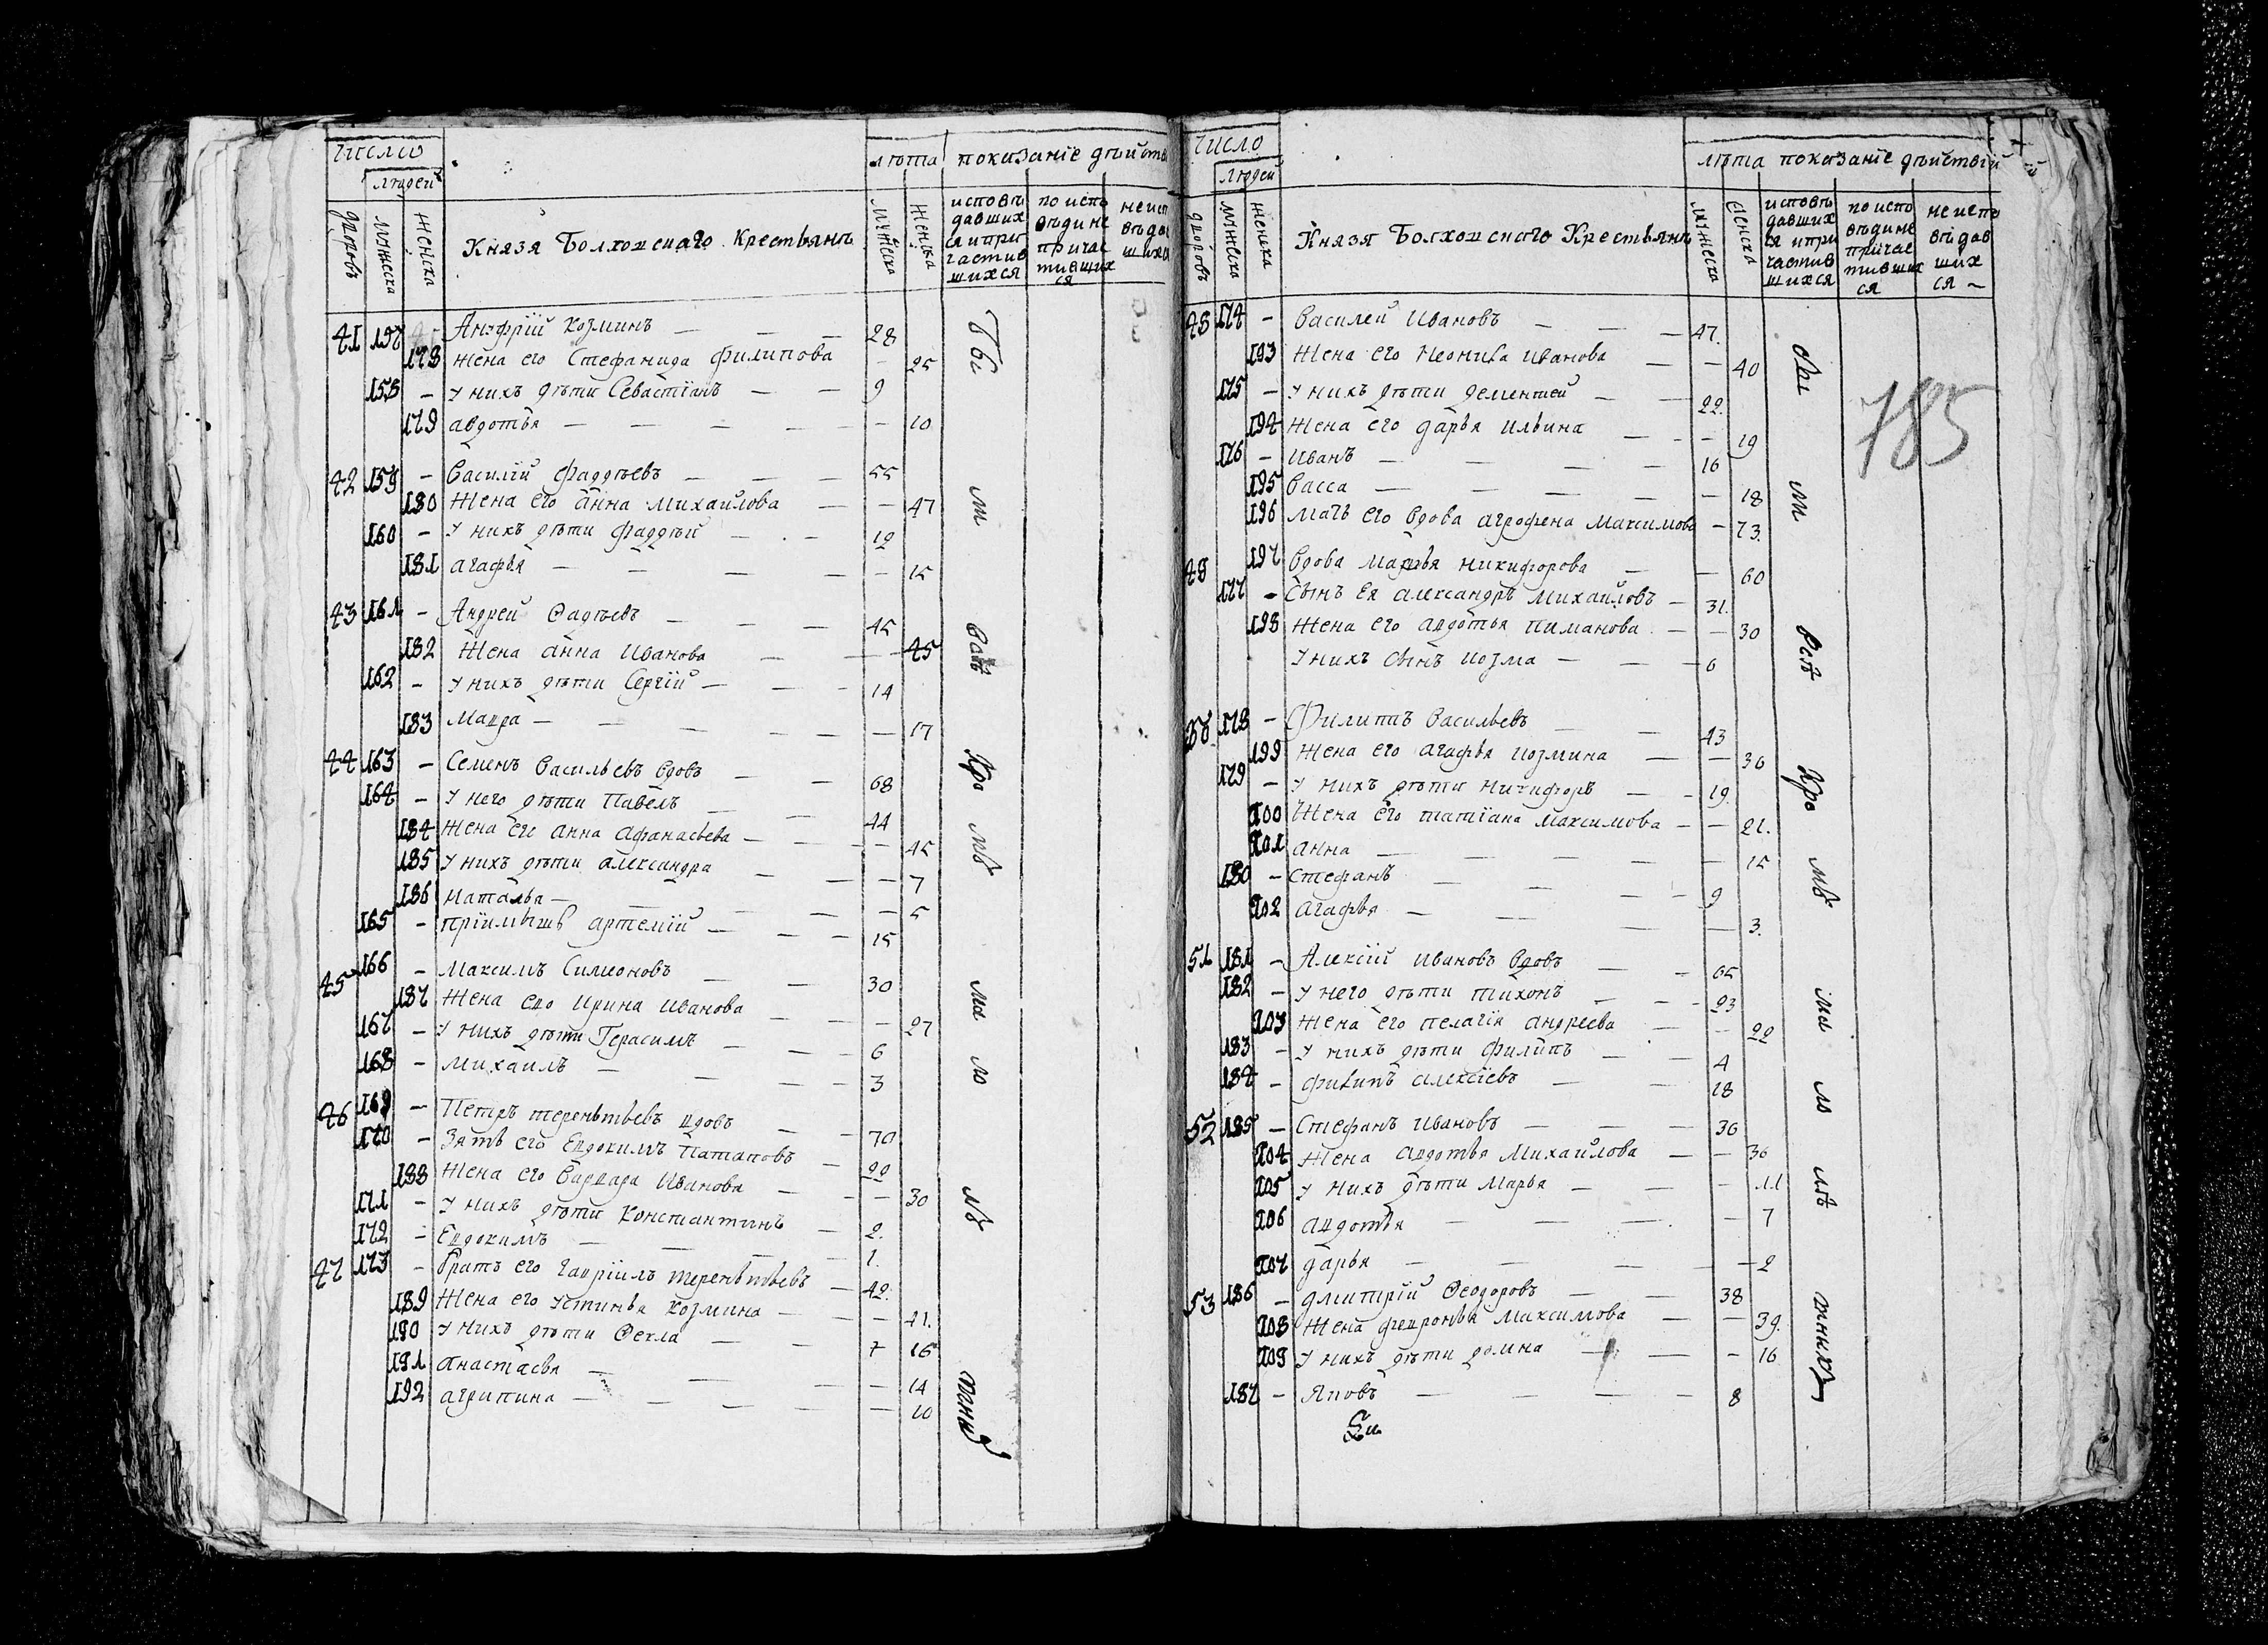 число
людей
дворовъ мужеска женска
Князя Болховскаго Крестьянъ
лѣта
мужеска женска
показанїе дѣйств
исповѣдавшихся и причастившихся
по исповѣди не причастившихся
не исповѣдавшихся
41 157 Анофрїй Козминъ — — — 28
178 жена его Стефанида Филипова — 25
158 — У нихъ дѣти Севастїанъ — — 9
179 авдотья — — — — — 10
42 159 — Василїй Фаддѣевъ — — — 55
180 Жена его анна Михайлова — — 47
160 — У нихъ дѣти Фаддѣй — — — 19
181 агафья — — — — — 15
43 161 — Андрей Ѳадѣевъ — — — 45
182 Жена анна Иванова — — 45
162 — У нихъ дѣти Сергїй — — — 14
183 Мавра — — — — — 17
44 163 — Семенъ Васильевъ вдовъ — — 68
164 — У него дѣти Павелъ — — 44
184 Жена его анна Афанасьева — — — 45
185 У нихъ дѣти александра — — — 7
186 наталья — — — — — 5
165 — прїимышъ артемїй — — — 15
45 166 — Максимъ Симеоновъ — — 30
187 Жена ево Ирина Иванова — — — 27
167 — У нихъ дѣти Герасимъ — — — 6
168 — Михаилъ — — — — 3
46 169 — Петръ терентьевъ вдовъ — — 70
170 — Зять его Евдокимъ Патаповъ — 22
188 Жена его Варвара Иванова — — — 30
171 — У нихъ дѣти Константинъ — 2.
172 — Евдокимъ — — — — 1.
47 173 — Братъ его Гаврїилъ терентьевъ — 42.
189 Жена его устинья Козмина — — — 41.
190 У нихъ дѣти Ѳекла — — 7 16
191 анастасья — — — — 14
192 агрипина — — — — — 10
число
людей
дворовъ мужеска женска
Князя Болховскаго Крестьянъ
лѣта
мужеска женска
показанїе дѣйствїй
исповѣдавшихся и причастившихся
по исповѣди не причастившихся
не исповѣдавшихся —
785
48 174 — Василей Ивановъ — — — 47.
193 Жена его Неонила Иванова — — 40
175 — У нихъ дѣти дементей — — 22.
194 Жена его дарья Ильина — — — 19
176 — Иванъ — — — — 16
195 Васса — — — — — 18
196 мать его вдова агрофена Максимова — 73.
197 Вдова Марья Никифорова — — 60
177 — Сынъ Ея александръ Михайловъ — 31.
198 Жена его авдотья Пиманова — — 30
У нихъ сынъ козма — — — 6
178 — Филиппъ Васильевъ — — 43
199 Жена его агафья козмина — — 36
179 — У нихъ дѣти Никифоръ — — 19.
200 Жена его татїана максимова — — 21.
201 анна — — — — — 15
180 — Стефанъ — — — — 9
202 агафья — — — — 3.
51 181 — Алексїй Ивановъ вдовъ — — 65
182 — У него дѣти тихонъ — — 23
203 Жена его пелагїя андреева — — 22
183 — У нихъ дѣти филипъ — — 4
184 — филипъ алексїевъ — — 18
52 185 — Стефанъ Ивановъ — — — 36
204 Жена авдотья Михайлова — — 36
205 У нихъ дѣти Марья — — — 11
206 авдотья — — — — 7
207 дарья — — — — — 2
53 186 — дмитрїй Ѳеодоровъ — — 38
208 Жена февронья максимова — — 39.
209 У нихъ дѣти домна — — — 16
187 — Яковъ — — — — 8